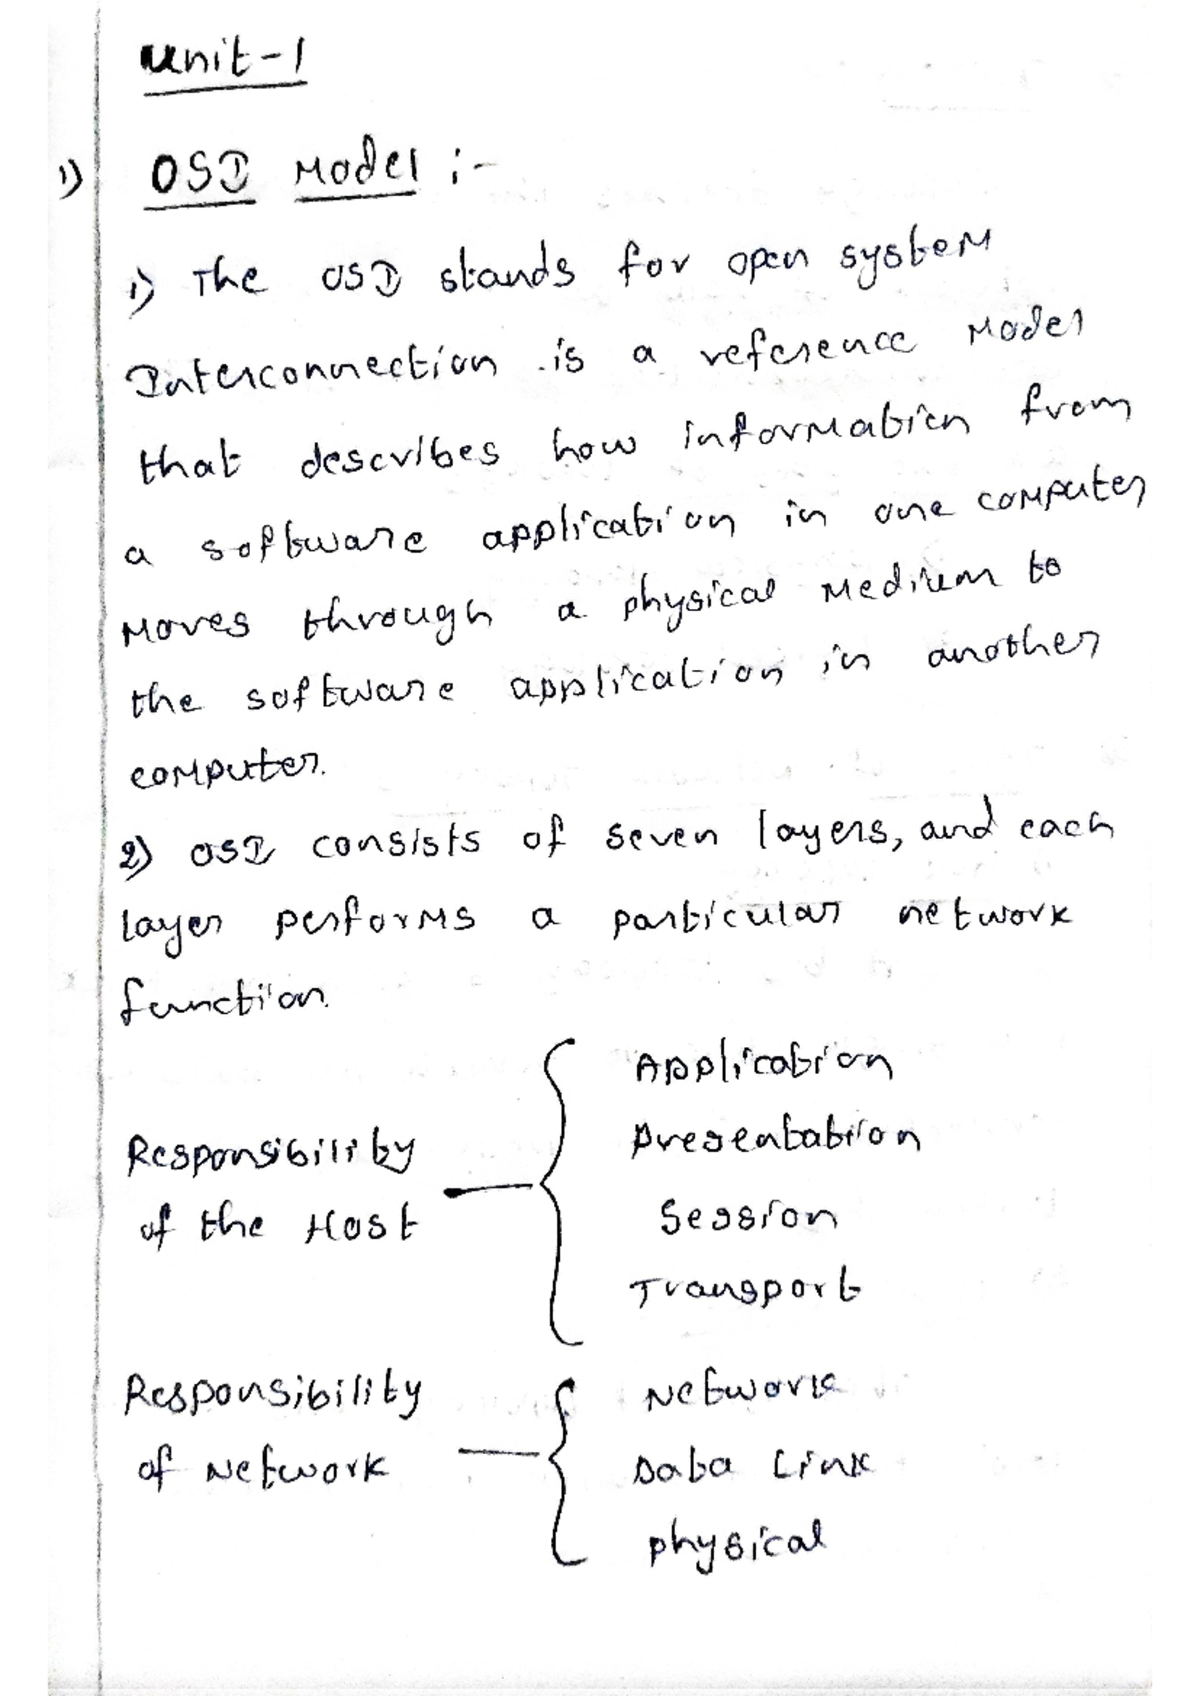 Unit-1
1) OSI Model :-
1) The OSI stands for open system
Interconnection is a reference Model
that describes how information from
a software application in one computer
Moves through a physical Medium to
the software application in another
computer.
2) OSI consists of seven layers, and each
layer performs a particular network
function.
Application
Presentation
Responsibility
of the Host
Session
Transport
Responsibility
of Network
Network
Data Link
physical